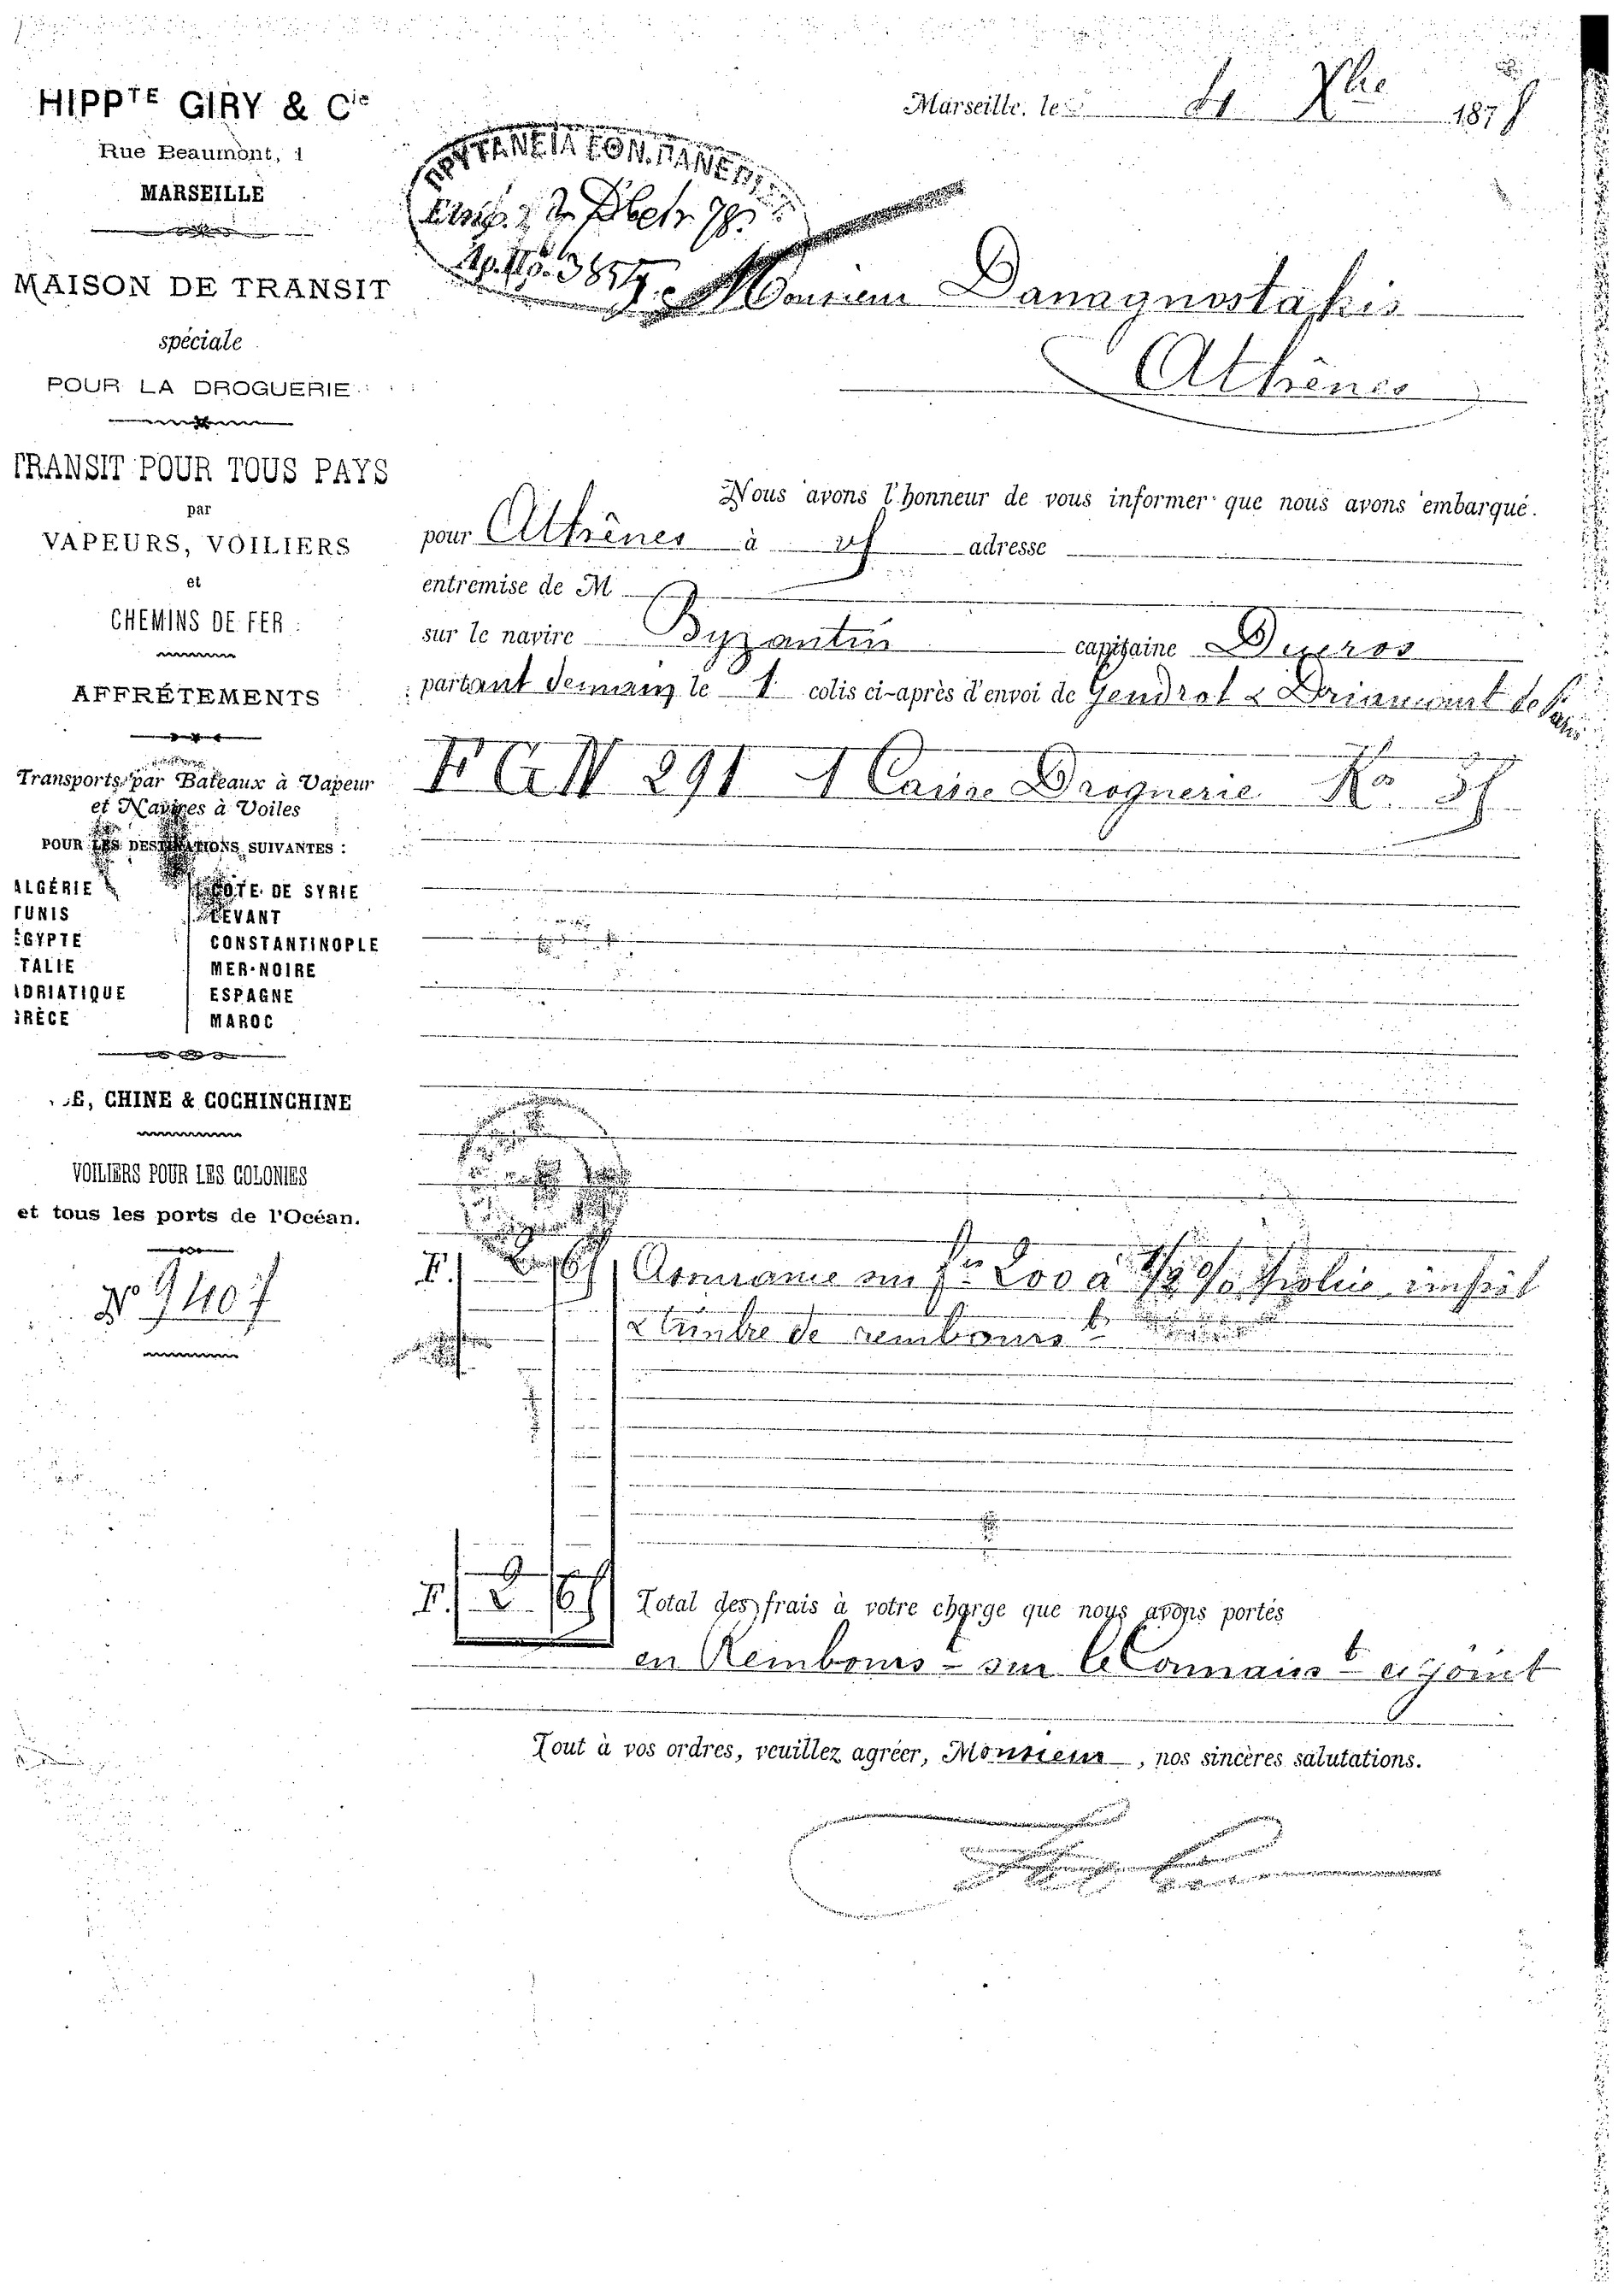 HIPPTE GIRY & Cie
Rue Beaumont, 1
MARSEILLE
MAISON DE TRANSIT
spéciale
POUR LA DROGUERIE
TRANSIT POUR TOUS PAYS
par
VAPEURS, VOILIERS
et
CHEMINS DE FER
AFFRÉTEMENTS
Transports par Bateaux à Vapeur
et Navires à Voiles
POUR LES DESTINATIONS SUIVANTES :
ALGÉRIE
TUNIS
EGYPTE
ITALIE
ADRIATIQUE
GRÈCE
CÔTE DE SYRIE
LEVANT
CONSTANTINOPLE
MER-NOIRE
ESPAGNE
MAROC
E, CHINE & COCHINCHINE
VOILIERS POUR LES COLONIES
et tous les ports de l'Océan.
No 9407
Marseille, le 4 Xbre 1878
ΠΡΥΤΑΝΕΙΑ ΤΟΥ ΠΑΝΕΠΙΣ
3854
Monsieur Danagnostakis
Athênes
Nous avons l'honneur de vous informer que nous avons embarqué
pour Athênes à adresse
entremise de M
sur le navire Byzantin capitaine Ducros
partant demain le 1 colis ci-après d'envoi de Gendrot & de Paris
F G N 291 1 Caisse Droguerie Ko
F. Assurance sur frs 200 à 1/2 %
& timbre de rembourst
F. 2 Total des frais à votre charge que nous avons portés
en Rembourst sur le Connaisst ci joint
Tout à vos ordres, veuillez agréer, Monsieur, nos sincères salutations.